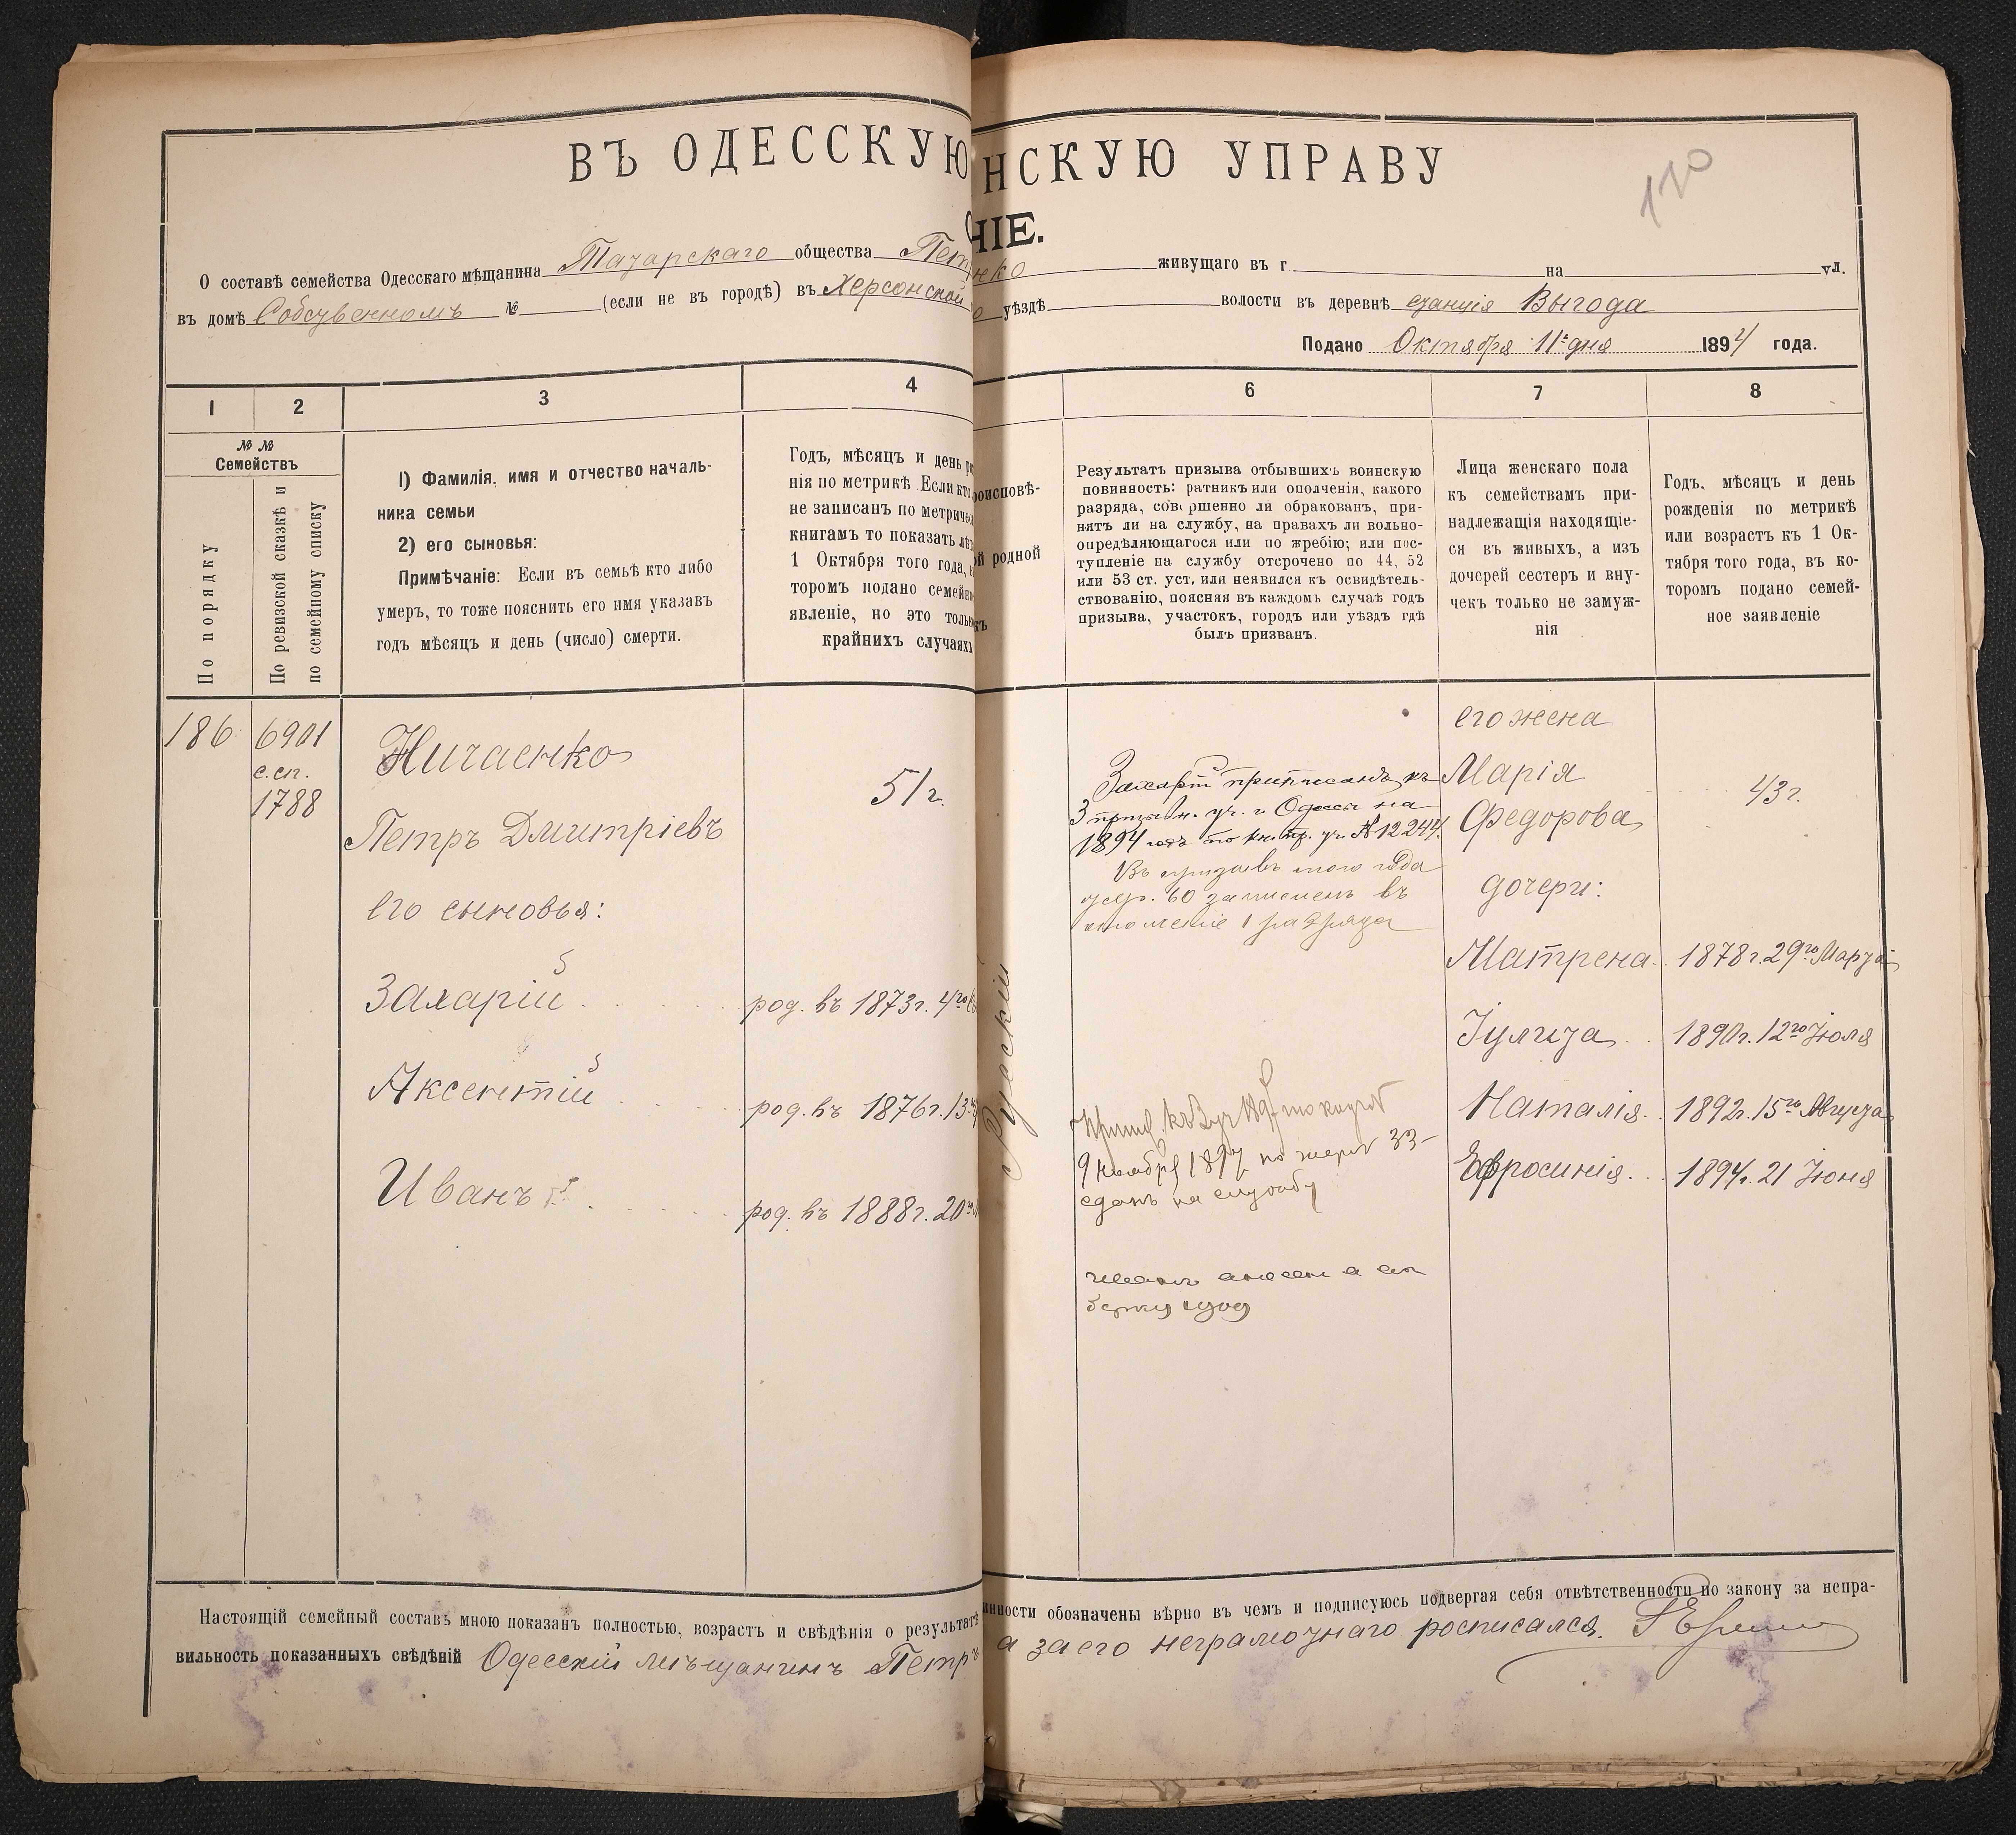 ВЪ ОДЕССКУЮ НСКУЮ УПРАВУ
НІЕ.
120
О составѣ семейства Одесскаго мѣщанина Татарскаго общества Пет нко живущаго въ г. на ул.
въ домѣ Собственномъ № (если не въ городѣ) въ Херсонской уѣздѣ волости въ деревнѣ станція Выгода
Подано Октября 11го дня 1894 года.
1 2 3 4 6 7 8
№ №
Семействъ
По порядку
По ревизской сказкѣ и
по семейному списку
1) Фамилія, имя и отчество началь-
ника семьи
2) его сыновья:
Примѣчаніе: Если въ семьѣ кто либо
умеръ, то тоже пояснить его имя указавъ
годъ мѣсяцъ и день (число) смерти.
Годъ, мѣсяцъ и день ро
нія по метрикѣ Если кто
не записанъ по метричес
книгамъ то показать лѣт
1 Октября того года, в
торомъ подано семейное
явленіе, но это только
крайнихъ случаяхъ
роисповѣ-
ой родной
къ
Результатъ призыва отбывшихъ воинскую
повинность: ратникъ или ополченія, какого
разряда, совершенно ли обракованъ, при-
нятъ ли на службу, на правахъ ли вольно-
опредѣляющагося или по жребію; или пос-
тупленіе на службу отсрочено по 44, 52
или 53 ст. уст. или неявился къ освидѣтель-
ствованію, поясняя въ каждомъ случаѣ годъ
призыва, участокъ, городъ или уѣздъ гдѣ
былъ призванъ.
Лица женскаго пола
къ семействамъ при-
надлежащія находящіе-
ся въ живыхъ, а изъ
дочерей сестеръ и вну-
чекъ только не замуж-
нія
Годъ, мѣсяцъ и день
рожденія по метрикѣ
или возрастъ къ 1 Ок-
тября того года, въ ко-
торомъ подано семей-
ное заявленіе
186 6901
с. сп.
1788
Ничаенко
51 г.
Петръ Дмитріевъ
его сыновья:
Захарій род. въ 1873 г. 4го
Аксентій род. въ 1876 г. 13го
Иванъ род. въ 1888 г. 20го
Русскій
Захарій приписанъ къ
3 призывн. уч. г. Одессы на
1894 годъ по кн. пр. уч. № 12244.
Въ призывъ того года
жер. 60 зачисленъ въ
ополченіе 1 разряда
9 ноября 1897 по жереб 33
сданъ на службу
его жена
Марія 43 г.
Федорова
дочери:
Матрена 1878 г. 29го Марта
Іулита 1890 г. 12го Іюля
Наталія 1892 г. 15го Августа
Ефросинія 1894 г. 21 Іюня
Настоящій семейный составъ мною показанъ полностью, возрастъ и свѣдѣнія о результатѣ инности обозначены вѣрно въ чемъ и подписуюсь подвергая себя отвѣтственности по закону за непра-
вильность показанныхъ свѣдѣній Одесскій мѣщанинъ Петръ а за его неграмотнаго росписался